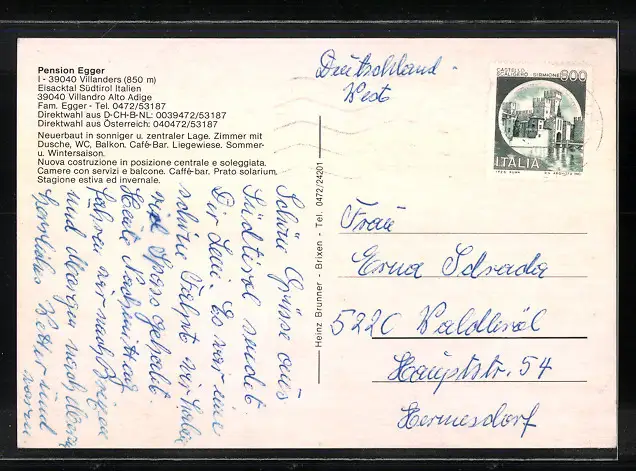 Pension Egger
I - 39040 Villanders (850 m)
Eisacktal Südtirol Italien
39040 Villandro Alto Adige
Fam. Egger - Tel. 0472/53187
Direktwahl aus D-CH-B-NL: 0039472/53187
Direktwahl aus Österreich: 040472/53187
Neuerbaut in sonniger u. zentraler Lage. Zimmer mit
Dusche, WC, Balkon. Café-Bar. Liegewiese. Sommer-
u. Wintersaison.
Nuova costruzione in posizione centrale e soleggiata.
Camere con servizi e balcone. Caffè-bar. Prato solarium.
Stagione estiva ed invernale.
Schöne Grüsse aus
Südtirol sendet
Dir Leni. Es war eine
schöne Fahrt wir haben
viel Spass gehabt.
Heute Nachmittag
fahren wir nach Brixen
und Morgen nach Meran
herrliches Wetter und
warm
Heinz Brunner - Brixen - Tel. 0472/24201
Deutschland -
West
CASTELLO
SCALIGERO - SIRMIONE
800
ITALIA
Frau
Erna Schrada
5220 Waldbröl
Hauptstr. 54
Hermesdorf